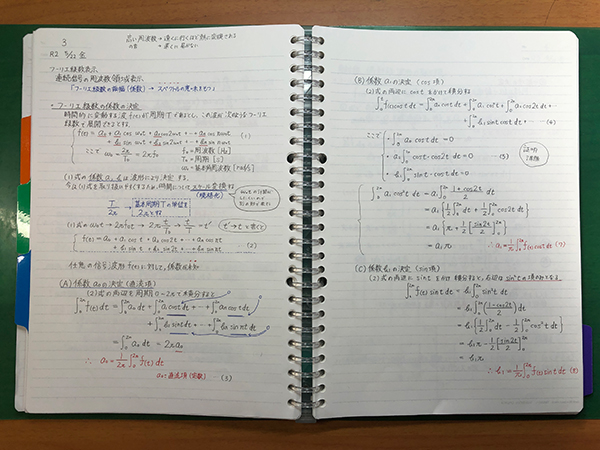 3
R2 5/22 金
高い周波数 → 遠くに行くほど熱に変換される
の音 → 遠くに届かない
フーリエ級数表示
連続信号の周波数領域表示
「フーリエ級数の振幅(係数) → スペクトルの意味をもつ」
・フーリエ級数の係数の決定
時間的に変動する波f(t)が周期Tであるとし、この波が次のようなフーリエ
級数で展開できるとする。
f(t) = a₀ + a₁ cos ω₀t + a₂ cos 2ω₀t + ‥ + aₙ cos nω₀t
+ b₁ sin ω₀t + b₂ sin 2ω₀t + ‥ + bₙ sin nω₀t (1)
ここで ω₀ = 2π/T₀ = 2πf₀
f₀ = 周波数 [Hz]
T₀ = 周期 [s]
ω₀ = 基本角周波数 [rad/s]
(1)式の係数 a, b は波形により決定する
今は(1)式を取り扱いやすくするため、時間についてスケール変換する
(規格化)
T/2π → 基本周期Tの単位を2πとする
(1)式の ω₀t → 2πf₀t → 2π t/T₀ → t' (t'→tと書く)
f(t) = a₀ + a₁ cos t + a₂ cos 2t + ‥ + aₙ cos nt
+ b₁ sin t + b₂ sin 2t + ‥ + bₙ sin nt (2)
任意の信号波形f(t)に対して、係数は
(A) 係数a₀の決定 (直流項)
(2)式の両辺を周期0~2πで積分すると
∫₀²π f(t) dt = ∫₀²π a₀ dt + ∫₀²π a₁ cos t dt + ‥ + ∫₀²π aₙ cos nt dt
+ ∫₀²π b₁ sin t dt + ‥ + ∫₀²π bₙ sin nt dt
= ∫₀²π a₀ dt = 2πa₀
∴ a₀ = 1/2π ∫₀²π f(t) dt
a₀:直流項 (定数) … (3)
(B) 係数a₁の決定 (cos項)
(2)式の両辺に cos t をかけて積分する
∫₀²π f(t) cos t dt = ∫₀²π a₀ cos t dt + ∫₀²π a₁ cos² t + ∫₀²π a₂ cos 2t dt + ‥
+ ∫₀²π b₁ sin t cos t dt + ‥ … (4)
ここで
∫₀²π a₀ cos t dt = 0
a₂ ∫₀²π cos t · cos 2t dt = 0 … (5)
b₁ ∫₀²π sin t · cos t dt = 0
∫₀²π a₁ cos² t dt = a₁ ∫₀²π (1 + cos 2t)/2 dt
= a₁ {1/2 ∫₀²π dt + 1/2 ∫₀²π cos 2t dt}
= a₁ {π + 1/2 [sin 2t/2]₀²π}
= a₁π
∴ a₁ = 1/π ∫₀²π f(t) cos t dt (7)
(C) 係数b₁の決定 (sin項)
(2)式の両辺に sin t をかけ積分すると、右辺は sin² t の項のみとなる
∫₀²π f(t) sin t dt = b₁ ∫₀²π sin² t dt
= b₁ ∫₀²π (1 − cos 2t)/2 dt
= b₁ {1/2 ∫₀²π dt − 1/2 ∫₀²π cos 2t dt}
= b₁π − 1/2 [sin 2t/2]₀²π
= b₁π
∴ b₁ = 1/π ∫₀²π f(t) sin t dt (8)